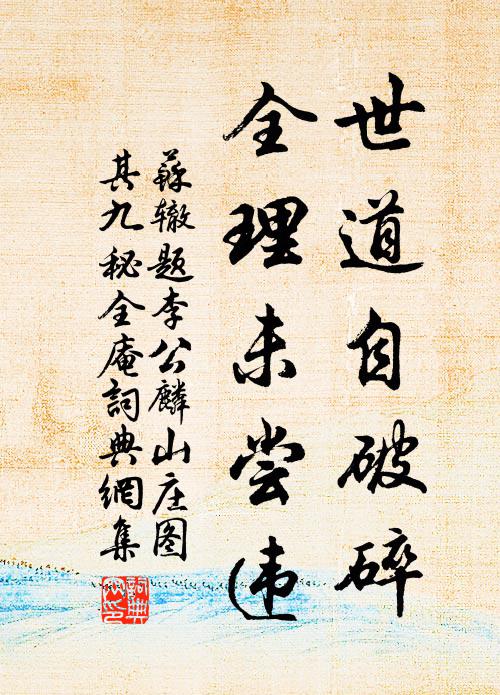 世道自破碎
全理未尝违
蘇辙题李公麟山庄图
其九秘全庵詞典網集